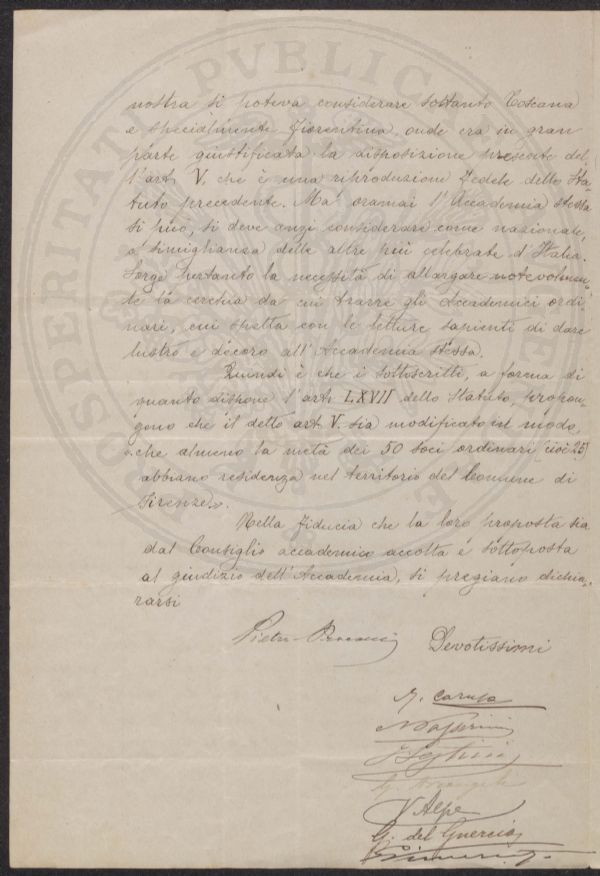 nostra si poteva considerare soltanto Toscana
e specialmente Fiorentina, onde era in gran
parte giustificata la disposizione presente del-
l'art. V, che è una riproduzione fedele dello Sta-
tuto precedente. Ma oramai l'Accademia stessa
si può, si deve anzi considerare come nazionale,
a simiglianza delle altre più celebrate d'Italia.
Sorge pertanto la necessità di allargare notevolmen-
te la cerchia da cui trarre gli Accademici ordi-
nari, cui spetta con le letture sapienti di dare
lustro e decoro all'Accademia stessa.
Quindi è che i sottoscritti, a forma di
quanto dispone l'art. LXVII dello Statuto, propon-
gono che il detto art. V. sia modificato in modo,
"che almeno la metà dei 50 soci ordinari (cioè 25)
abbiano residenza nel territorio del Comune di
Firenze".
Nella fiducia che la loro proposta sia
dal Consiglio accademico accolta e sottoposta
al giudizio dell'Accademia, si pregiano dichia-
rarsi
Pietro Devotissimi
Caruso
V Alpe
G. del Guercio
PROSPERITATI PUBLICAE